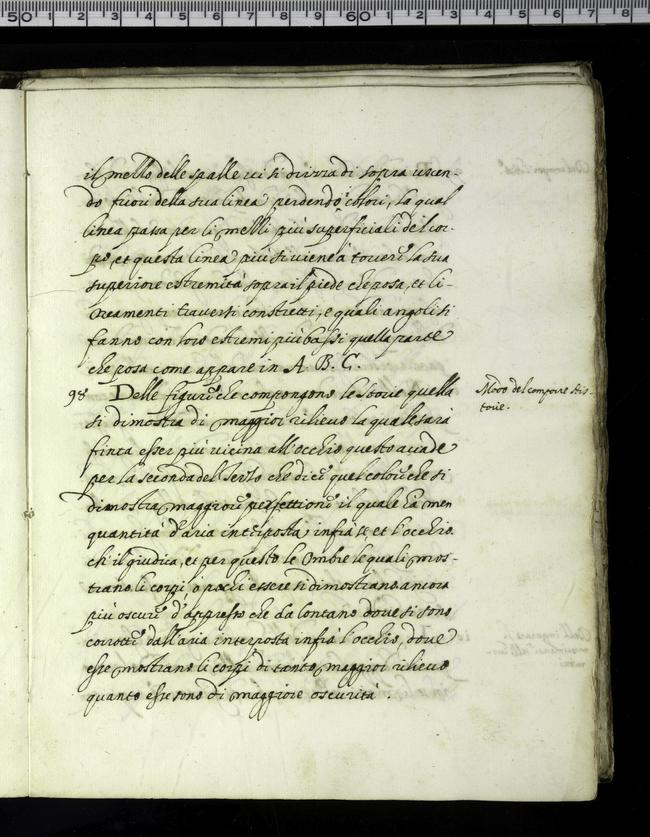 il mello delle spalle vi si drizza di sopra uscen-
do fuori della sua linea perdendo i colori, la qual
linea passa per li melli più superficiali del cor-
po, et questa linea più si viene à torcere la sua
superiore estremità sopra il piede che posa, et li-
neamenti traversi constretti, e quali angoli si
fanno con loro estremi più bassi quella parte
che posa come appare in A. B. C.
98 Delle figure che compongono le storie quella
si dimostra di maggior rilievo la quale sarà
finta esser più vicina all'occhio questo acade
per la seconda del Terzo che dice quel colore che si
dimostra maggiore perfettione il quale hà men
quantità d'aria interposta infrà se et l'occhio
ch'il giudica, et per questo le Ombre le quali mos-
trano li corpi opachi essere si dimostrano ancora
più oscure d'appresso che da lontano dove si sono
corrotte dall'aria interposta infra l'occhio, dove
esse mostrano li corpi di tanto maggior rilievo
quanto esse sono di maggiore oscurità.
Modo del comporre His-
torie.